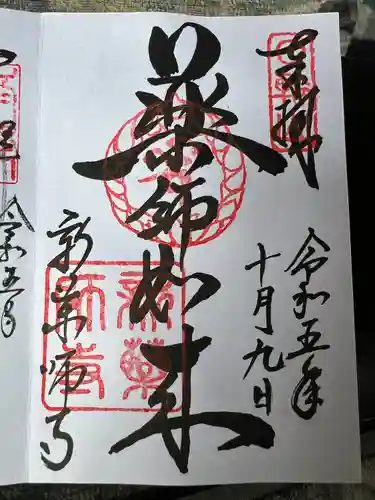 奉拝
令和五年
十月九日
薬師如来
新薬師寺
令和五年